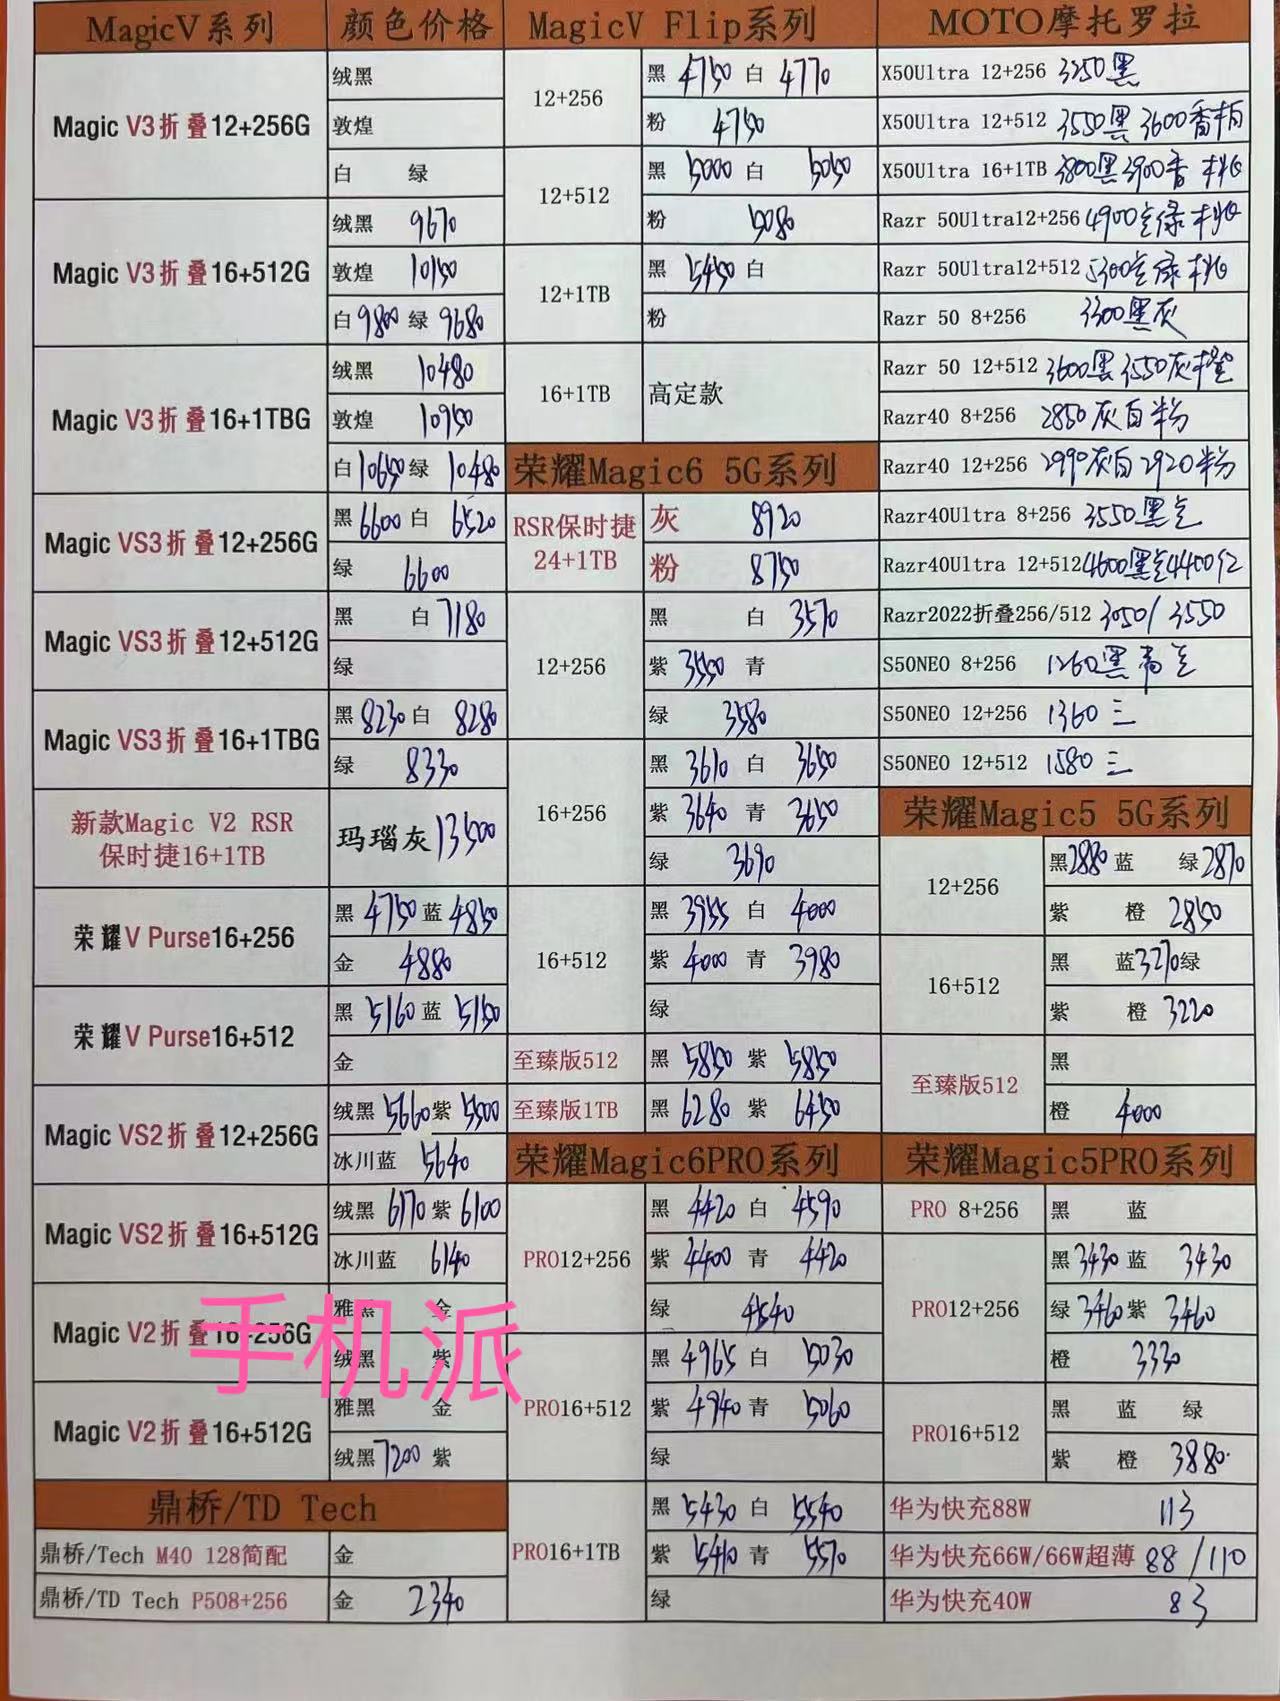 MagicV系列 颜色价格
Magic V3折叠12+256G 绒黑
敦煌
白 绿
Magic V3折叠16+512G 绒黑 9670
敦煌 10150
白 9800 绿 9680
Magic V3折叠16+1TBG 绒黑 10480
敦煌 10950
白 10650 绿 10480
Magic VS3折叠12+256G 黑 6600 白 6520
绿 6600
Magic VS3折叠12+512G 黑 白 7180
绿
Magic VS3折叠16+1TBG 黑 8230 白 8280
绿 8330
新款Magic V2 RSR
保时捷16+1TB 玛瑙灰 13500
荣耀V Purse16+256 黑 4750 蓝 4850
金 4880
荣耀V Purse16+512 黑 5160 蓝 5150
金
Magic VS2折叠12+256G 绒黑 5660 紫 5500
冰川蓝 5640
Magic VS2折叠16+512G 绒黑 6170 紫 6100
冰川蓝 6140
Magic V2折叠16+256G 雅黑 金
绒黑 紫
Magic V2折叠16+512G 雅黑 金
绒黑 7200 紫
鼎桥/TD Tech
鼎桥/Tech M40 128简配 金
鼎桥/TD Tech P508+256 金 2340
MagicV Flip系列
12+256 黑 4750 白 4770
粉 4750
12+512 黑 5000 白 5050
粉 5080
12+1TB 黑 5450 白
粉
16+1TB 高定款
荣耀Magic6 5G系列
RSR保时捷 灰 8920
24+1TB 粉 8750
12+256 黑 白 3570
紫 3550 青
绿 3580
16+256 黑 3610 白 3650
紫 3640 青 3650
绿 3690
16+512 黑 3955 白 4000
紫 4000 青 3980
绿
至臻版512 黑 5850 紫 5850
至臻版1TB 黑 6280 紫 6450
荣耀Magic6PRO系列
PRO12+256 黑 4420 白 4590
紫 4400 青 4420
绿 4540
PRO16+512 黑 4965 白 5030
紫 4940 青 5060
绿
PRO16+1TB 黑 5430 白 5540
紫 5410 青 5570
绿
MOTO摩托罗拉
X50Ultra 12+256 3250黑
X50Ultra 12+512 3550黑 3600香柏
X50Ultra 16+1TB 3800黑3900香 桃
Razr 50Ultra12+256 4900兰绿 桃
Razr 50Ultra12+512 5300兰绿 桃
Razr 50 8+256 3300黑灰
Razr 50 12+512 3600黑 3550灰橙
Razr40 8+256 2850灰白粉
Razr40 12+256 2990灰白2920粉
Razr40Ultra 8+256 3550黑兰
Razr40Ultra 12+512 4600黑兰4400红
Razr2022折叠256/512 3050/3550
S50NEO 8+256 1260黑青兰
S50NEO 12+256 1360 三
S50NEO 12+512 1580 三
荣耀Magic5 5G系列
12+256 黑2880 蓝 绿2870
紫 橙 2850
16+512 黑 蓝3270绿
紫 橙 3220
至臻版512 黑
橙 4000
荣耀Magic5PRO系列
PRO 8+256 黑 蓝
PRO12+256 黑3430蓝 3430
绿3460紫 3460
橙 3330
PRO16+512 黑 蓝 绿
紫 橙 3880
华为快充88W 113
华为快充66W/66W超薄 88/110
华为快充40W 83
手机派